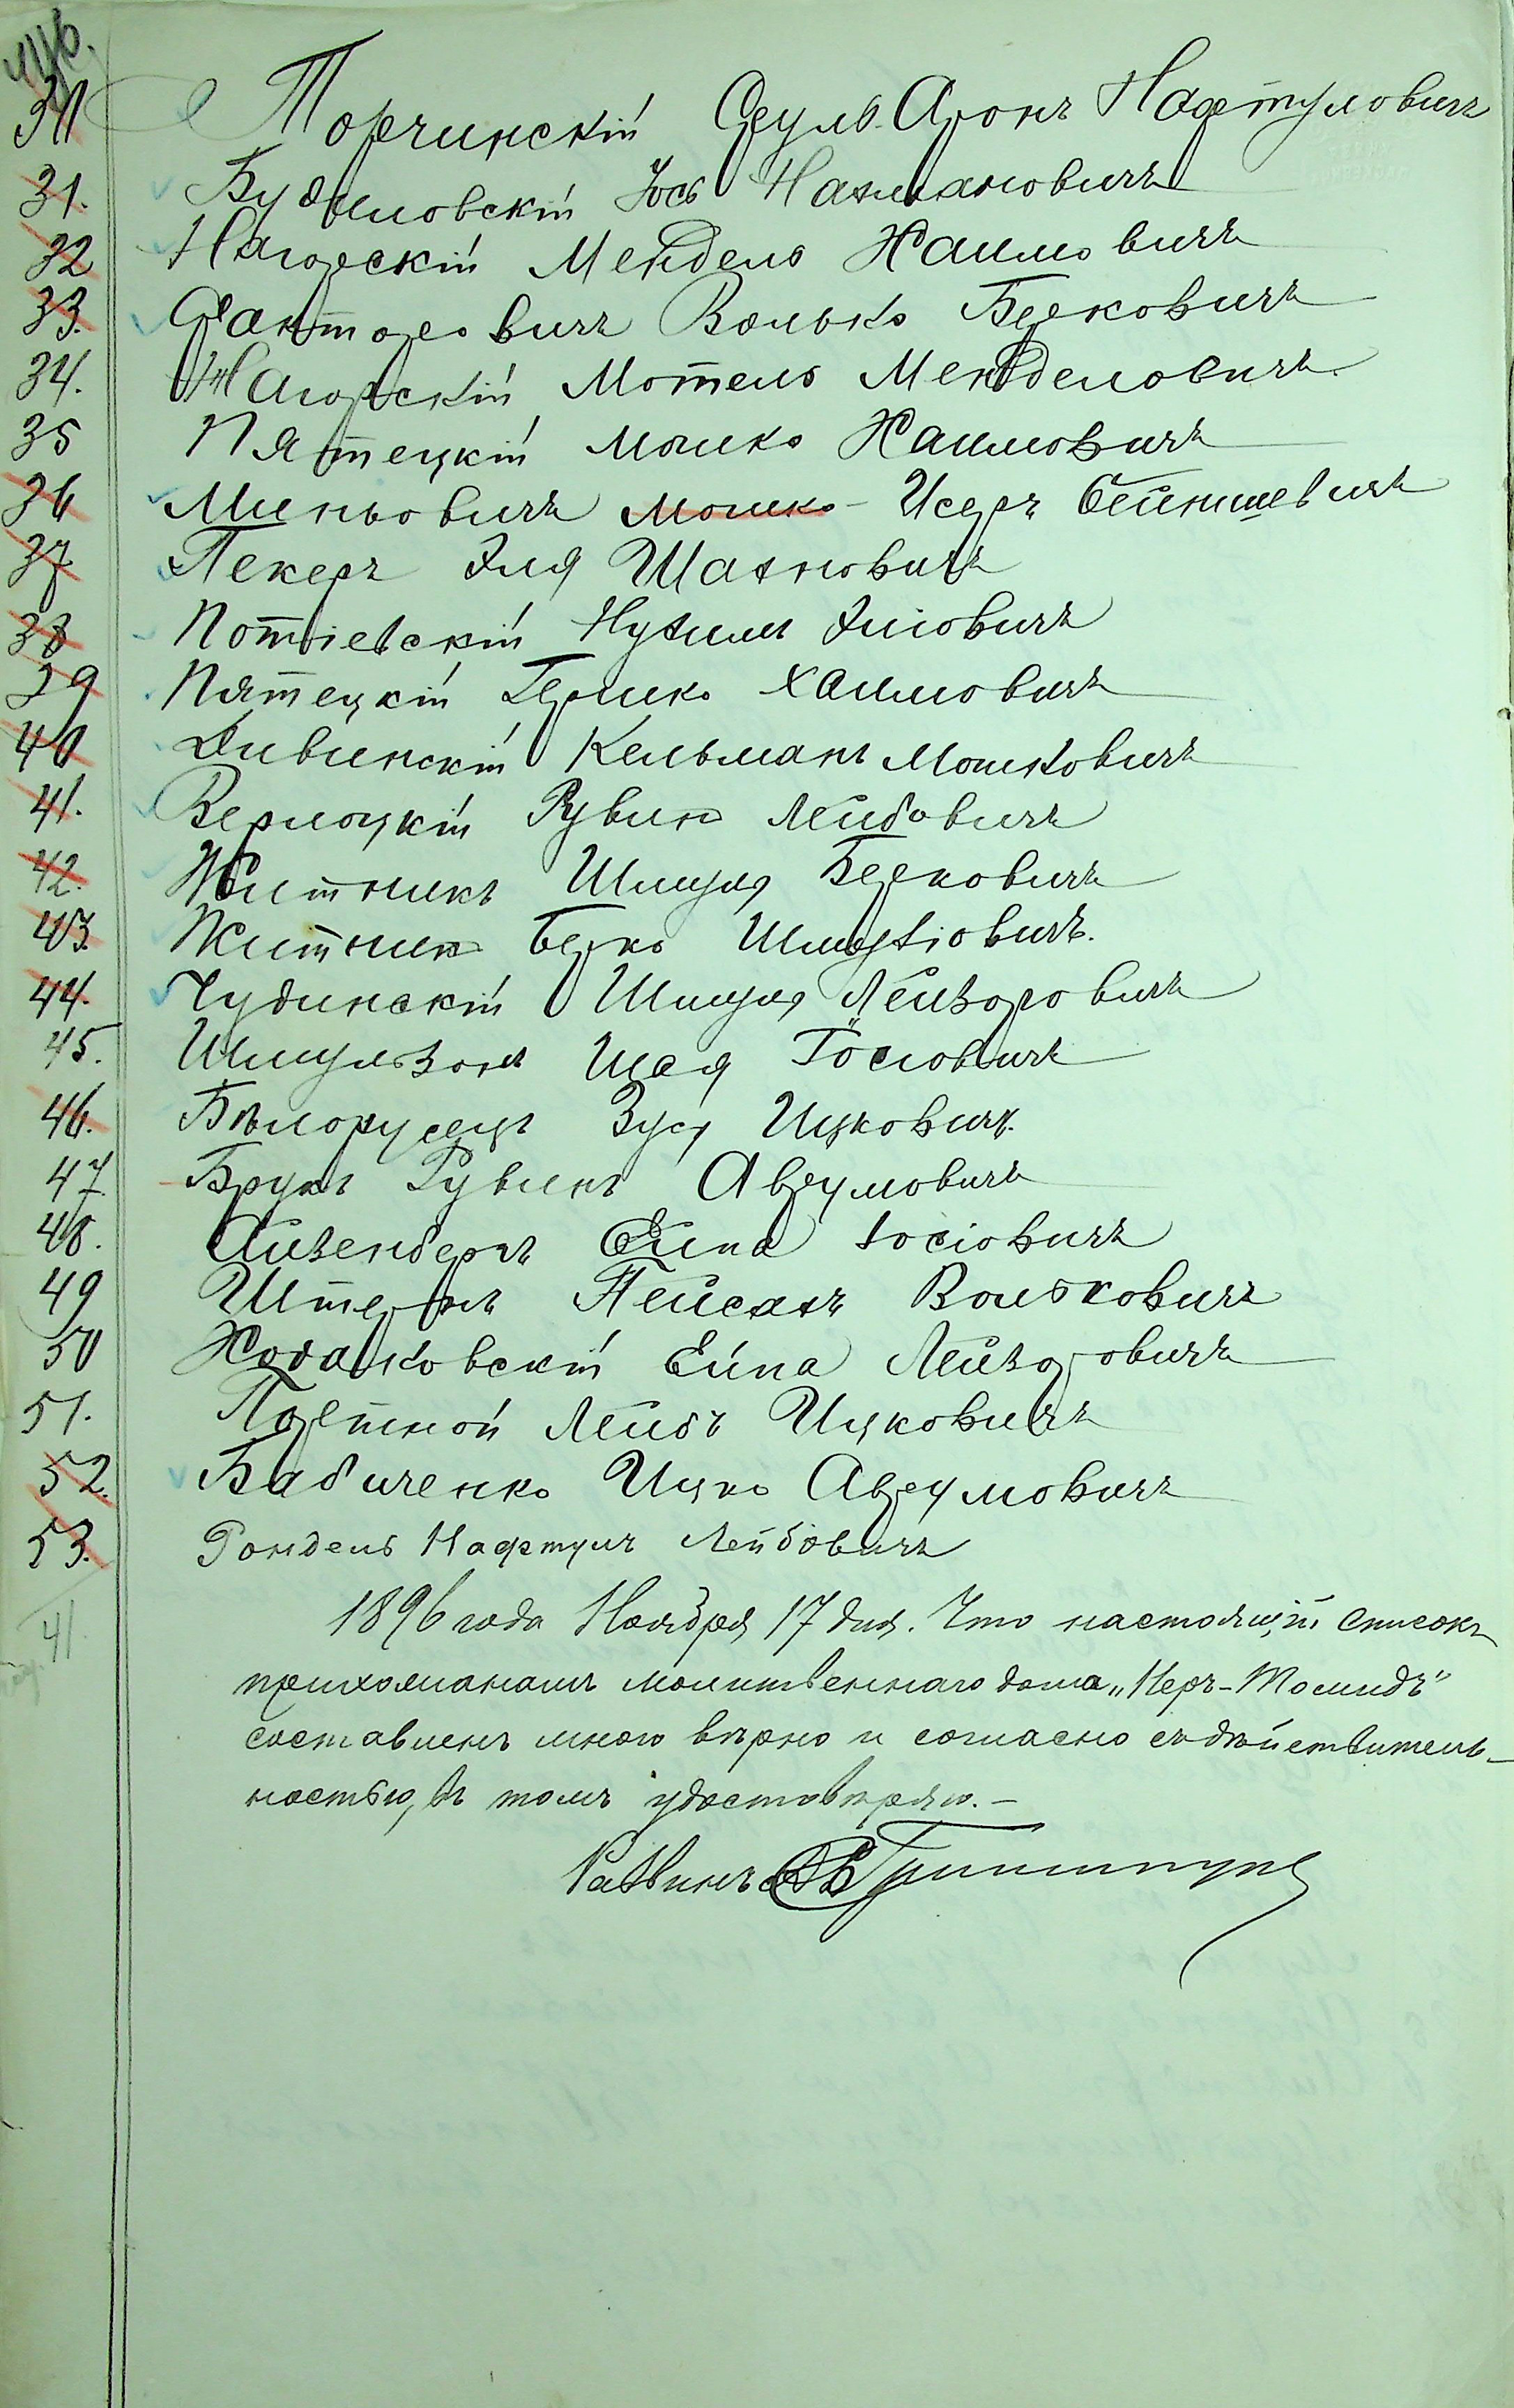 446.
30 Торчинскій Сруль-Аронъ Нафтуловичъ
31. Будиловскій Юсь Нахмановичъ
32 Нагорскій Мендель Хаимовичъ
33. Факторовичъ Волько Берковичъ
34. Нагорскій Мотель Менделовичъ.
35 Пятецкій Мошко Хаимовичъ
36 Миньовичъ Мошко-Исеръ Бейнишевичъ
37 Пекеръ Эля Шахновичъ
38 Потіевскій Нухимъ Эліовичъ
39 Пятецкій Гершко Хаимовичъ
40 Дивинскій Кельманъ Мошковичъ
41. Верлоцкій Рувин Лейбовичъ
42. Житникъ Шмуля Берковичъ
43. Житник Берко Шмуліовичъ.
44. Чудинскій Шмуля Лейзоровичъ
45. Шмульзонъ Шая Іосіовичъ
46. Бѣлорусецъ Зуся Ицковичъ.
47. Брукъ Рувинъ Аврумовичъ
48. Айзенбергъ Ейна Іосіовичъ
49 Штернъ Пейсахъ Вольковичъ
50 Ходаковскій Ейна Лейзоровичъ
51. Портной Лейбъ Ицковичъ
52. Бабиченко Ицко Аврумовичъ
53. Рондель Нафтулъ Лейбовичъ
41. 1896 года Ноября 17 дня. Что настоящій списокъ
прихожанамъ молитвеннаго дома „Неръ-Томидъ"
составленъ мною вѣрно и согласно съ дѣйствитель-
ностью, въ томъ удостовѣряю.-
Раввинъ